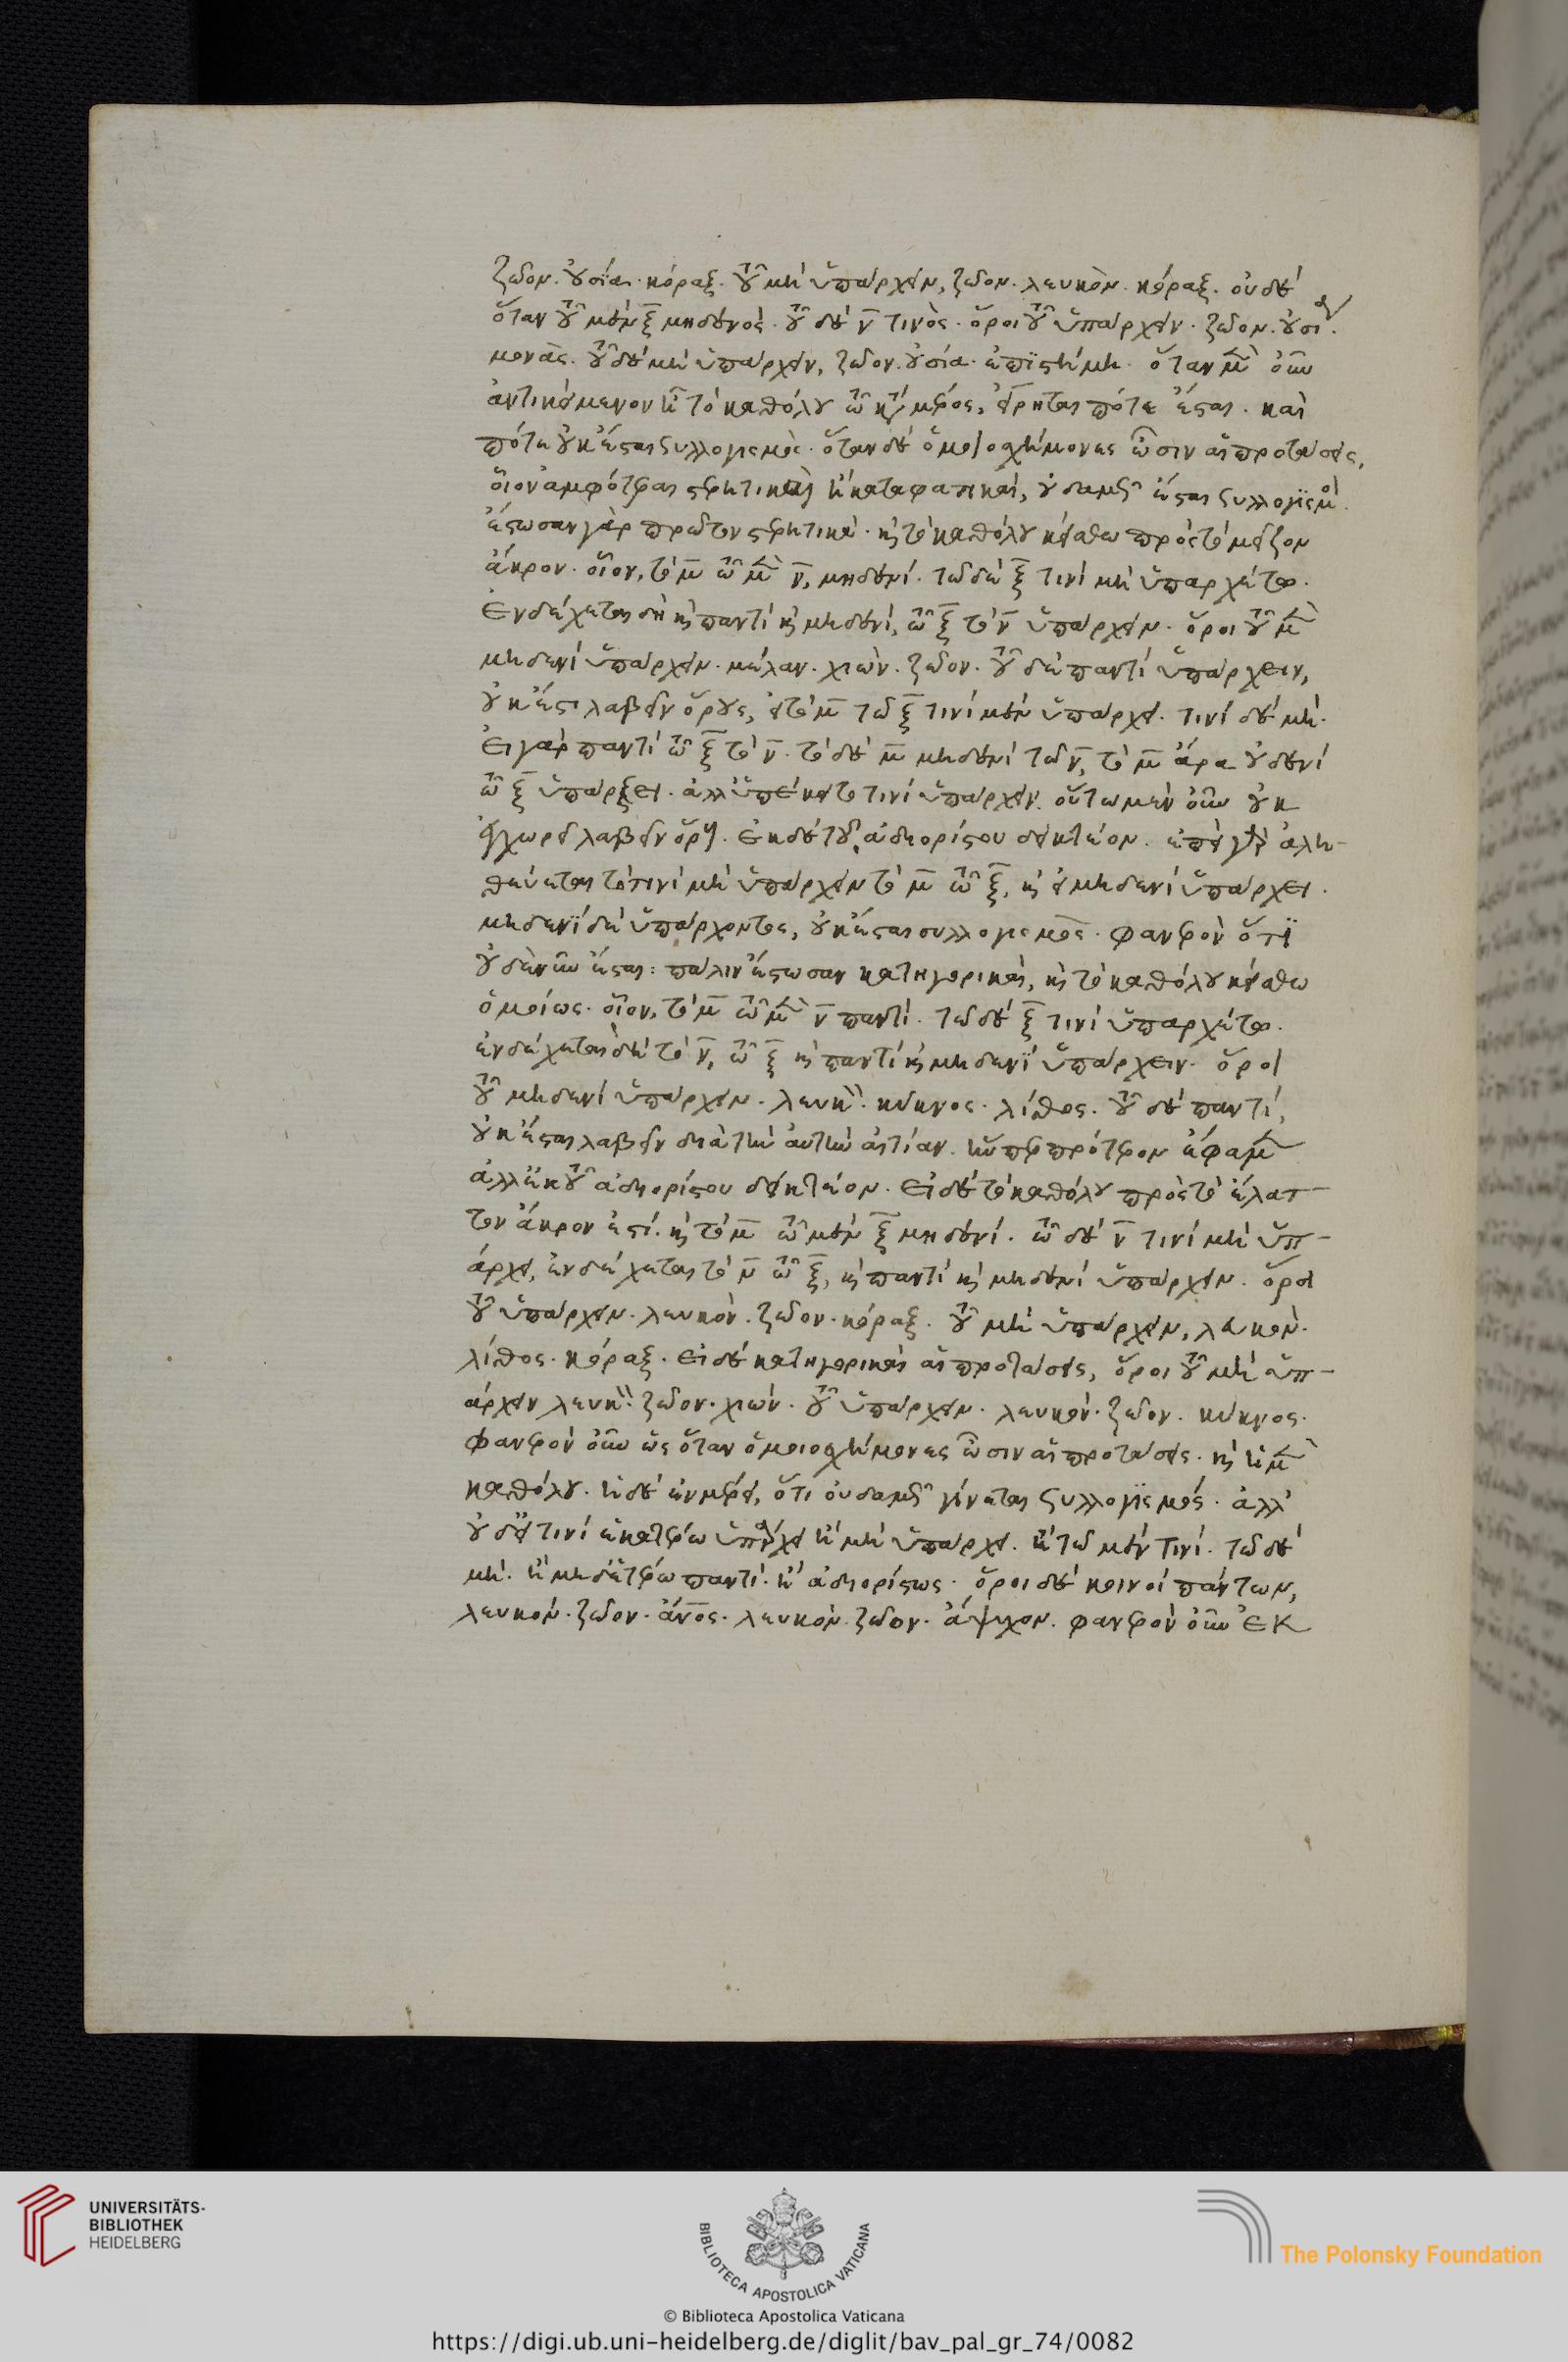 ζῶον. οὐσία. κόραξ. τοῦ μὴ ὑπάρχειν, ζῶον. λευκὸν. κόραξ. οὐδὲ
ὅταν τοῦ μὲν ξ̅ μηδενὸς. τοῦ δὲ ν̅ τινὸς. ὅροι τοῦ ὑπάρχειν. ζῶον. οὐσία.
μονὰς. τοῦ δὲ μὴ ὑπάρχειν, ζῶον. οὐσία. ἐπιστήμη. ὅταν μὲν οὖν
ἀντικείμενον ἦ τὸ καθόλου τῶ κατὰ μέρος, εἴρηται πότε ἔσται. καὶ
πότε οὐκ ἔσται συλλογισμὸς. ὅταν δὲ ὁμοιοσχήμονες ὦσιν αἱ προτάσεις,
οἷον ἀμφότεραι στερητικαὶ ἢ καταφατικαὶ, οὐδαμῶς ἔσται συλλογισμὸ.
ἔστωσαν γὰρ πρῶτον στερητικαὶ. καὶ τὸ καθόλου κείσθω πρὸς τὸ μεῖζον
ἄκρον. οἷον, τὸ μ̅ τῶ μὲν ν̅, μηδενί. τῶ δὲ ξ̅ τινὶ μὴ ὑπαρχέτω.
ἐνδέχεται δὴ καὶ παντὶ καὶ μηδενὶ, τῶ ξ̅ τὸ ν̅ ὑπάρχειν. ὅροι τοῦ μὲν
μηδενὶ ὑπάρχειν. μέλαν. χιὼν. ζῶον. τοῦ δὲ παντὶ ὑπάρχειν,
οὐκ ἔστι λαβεῖν ὅρους, εἰ τὸ μ̅ τῶ ξ̅ τινὶ μὲν ὑπάρχει. τινὶ δὲ μὴ.
εἰ γὰρ παντὶ τῶ ξ̅ τὸ ν̅. τὸ δὲ μ̅ μηδενὶ τῶ ν̅, τὸ μ̅ ἄρα οὐδενὶ
τῶ ξ̅ ὑπάρξει. ἀλλ' ὑπέκειτο τινὶ ὑπάρχειν. οὕτω μὲν οὖν οὐκ
ἐγχωρεῖ λαβεῖν ὅρους. ἐκ δὲ τοῦ ἀδιορίστου δεικτέον. ἐπεὶ γὰρ ἀλη-
θεύεται τὸ τινὶ μὴ ὑπάρχειν τὸ μ̅ τῶ ξ̅, καὶ εἰ μηδενὶ ὑπάρχει.
μηδενὶ δὲ ὑπάρχοντος, οὐκ ἔσται συλλογισμὸς. φανερὸν ὅτι
οὐδὲ νῦν ἔσται: πάλιν ἔστωσαν κατηγορικαὶ, καὶ τὸ καθόλου κείσθω
ὁμοίως. οἷον, τὸ μ̅ τῶ μὲν ν̅ παντὶ. τῶ δὲ ξ̅ τινὶ ὑπαρχέτω.
ἐνδέχεται δὴ τὸ ν̅, τῶ ξ̅ καὶ παντὶ καὶ μηδενὶ ὑπάρχειν. ὅροι
τοῦ μηδενὶ ὑπάρχειν. λευκὸν. κύκνος. λίθος. τοῦ δὲ παντὶ,
οὐκ ἔσται λαβεῖν διὰ τὴν αὐτὴν αἰτίαν. ἥν περ πρότερον ἔφαμεν
ἀλλ' ἐκ τοῦ ἀδιορίστου δεικτέον. εἰ δὲ τὸ καθόλου πρὸς τὸ ἔλατ-
τον ἄκρον ἐστί. καὶ τὸ μ̅ τῶ μὲν ξ̅ μηδενὶ. τῶ δὲ ν̅ τινὶ μὴ ὑπ-
άρχει, ἐνδέχεται τὸ ν̅ τῶ ξ̅, καὶ παντὶ καὶ μηδενὶ ὑπάρχειν. ὅροι
τοῦ ὑπάρχειν. λευκὸν. ζῶον. κόραξ. τοῦ μὴ ὑπάρχειν, λευκὸν.
λίθος. κόραξ. εἰ δὲ κατηγορικαὶ αἱ προτάσεις, ὅροι τοῦ μὴ ὑπ-
άρχειν λευκὸν. ζῶον. χιών. τοῦ ὑπάρχειν. λευκὸν. ζῶον. κύκνος.
φανερὸν οὖν ὡς ὅταν ὁμοιοσχήμονες ὦσιν αἱ προτάσεις. καὶ ἡ μὲν
καθόλου. ἡ δὲ ἐν μέρει, ὅτι οὐδαμῶς γίνεται συλλογισμός. ἀλλ'
οὐδ' εἰ τινὶ ἑκατέρω ὑπάρχει ἢ μὴ ὑπάρχει. ἢ τῶ μὲν τινί. τῶ δὲ
μὴ. ἢ μηδετέρω παντὶ. ἢ ἀδιορίστως. ὅροι δὲ κοινοὶ πάντων,
λευκὸν. ζῶον. ἄν̅ος. λευκὸν. ζῶον. ἄψυχον. φανερὸν οὖν ἐκ
UNIVERSITÄTS-
BIBLIOTHEK
HEIDELBERG
BIBLIOTECA APOSTOLICA VATICANA
The Polonsky Foundation
© Biblioteca Apostolica Vaticana
https://digi.ub.uni-heidelberg.de/diglit/bav_pal_gr_74/0082